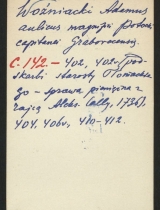 Woźniacki Adamus
aulicus magnifici Potocki
capitanei Graboviecensis
C. 142 — 402, 402v (pod-
skarbi starosty Tłomackie-
go — sprawa pieniężna z
rajcą Aleks. Cally, 1736),
404, 406v, 410-412.